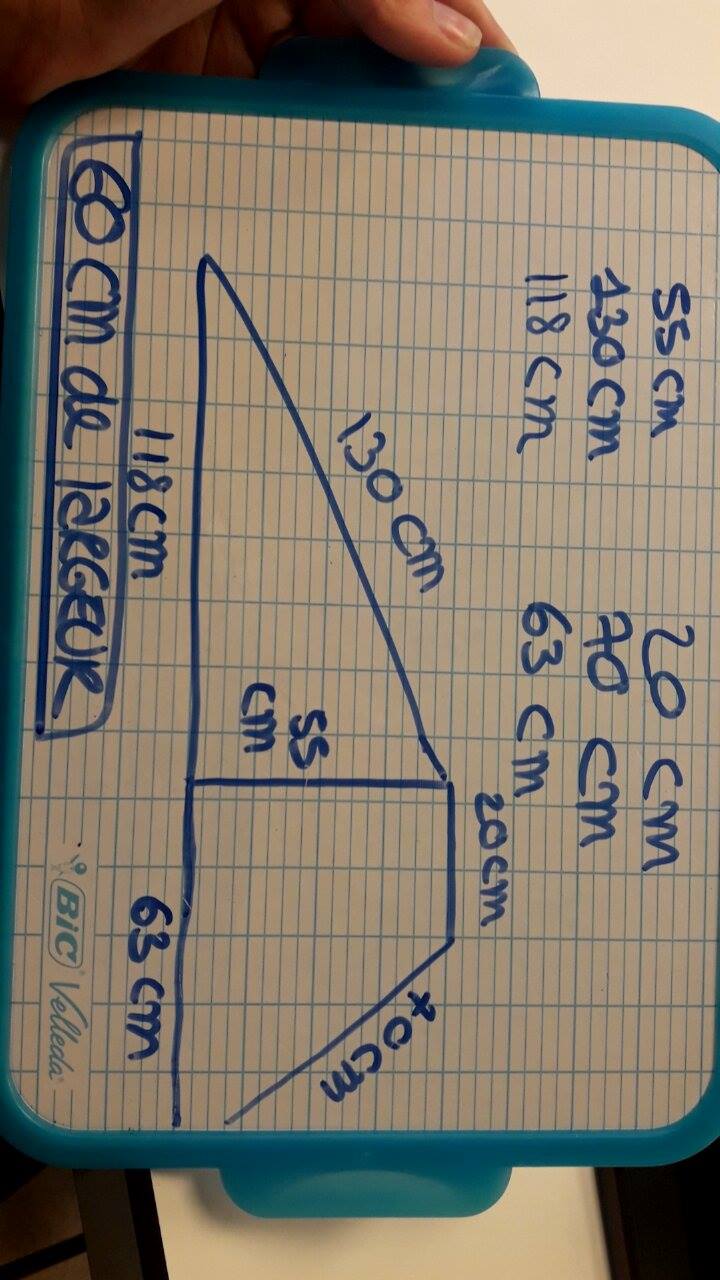 55 cm
130 cm
118 cm
20 cm
70 cm
63 cm
130 cm
20 cm
70 cm
55
cm
118 cm
63 cm
60 cm de LARGEUR
BIC Velleda